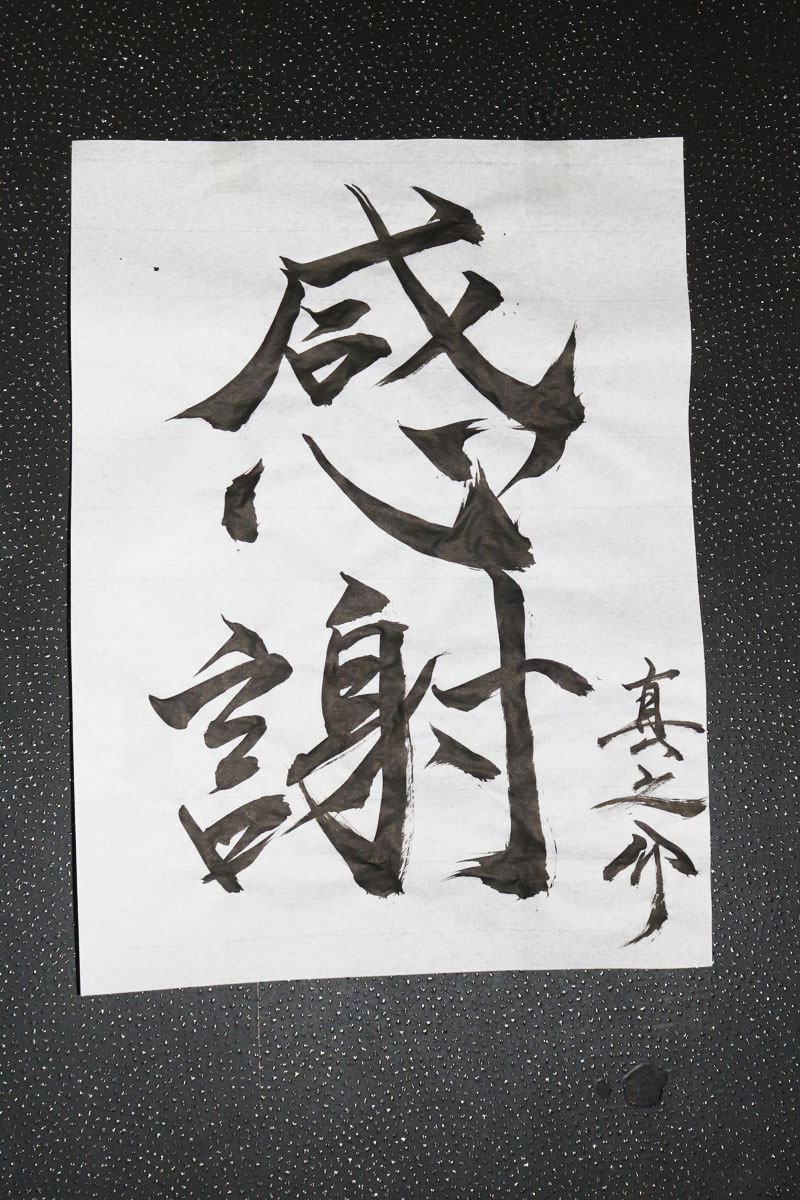 感謝
真之介